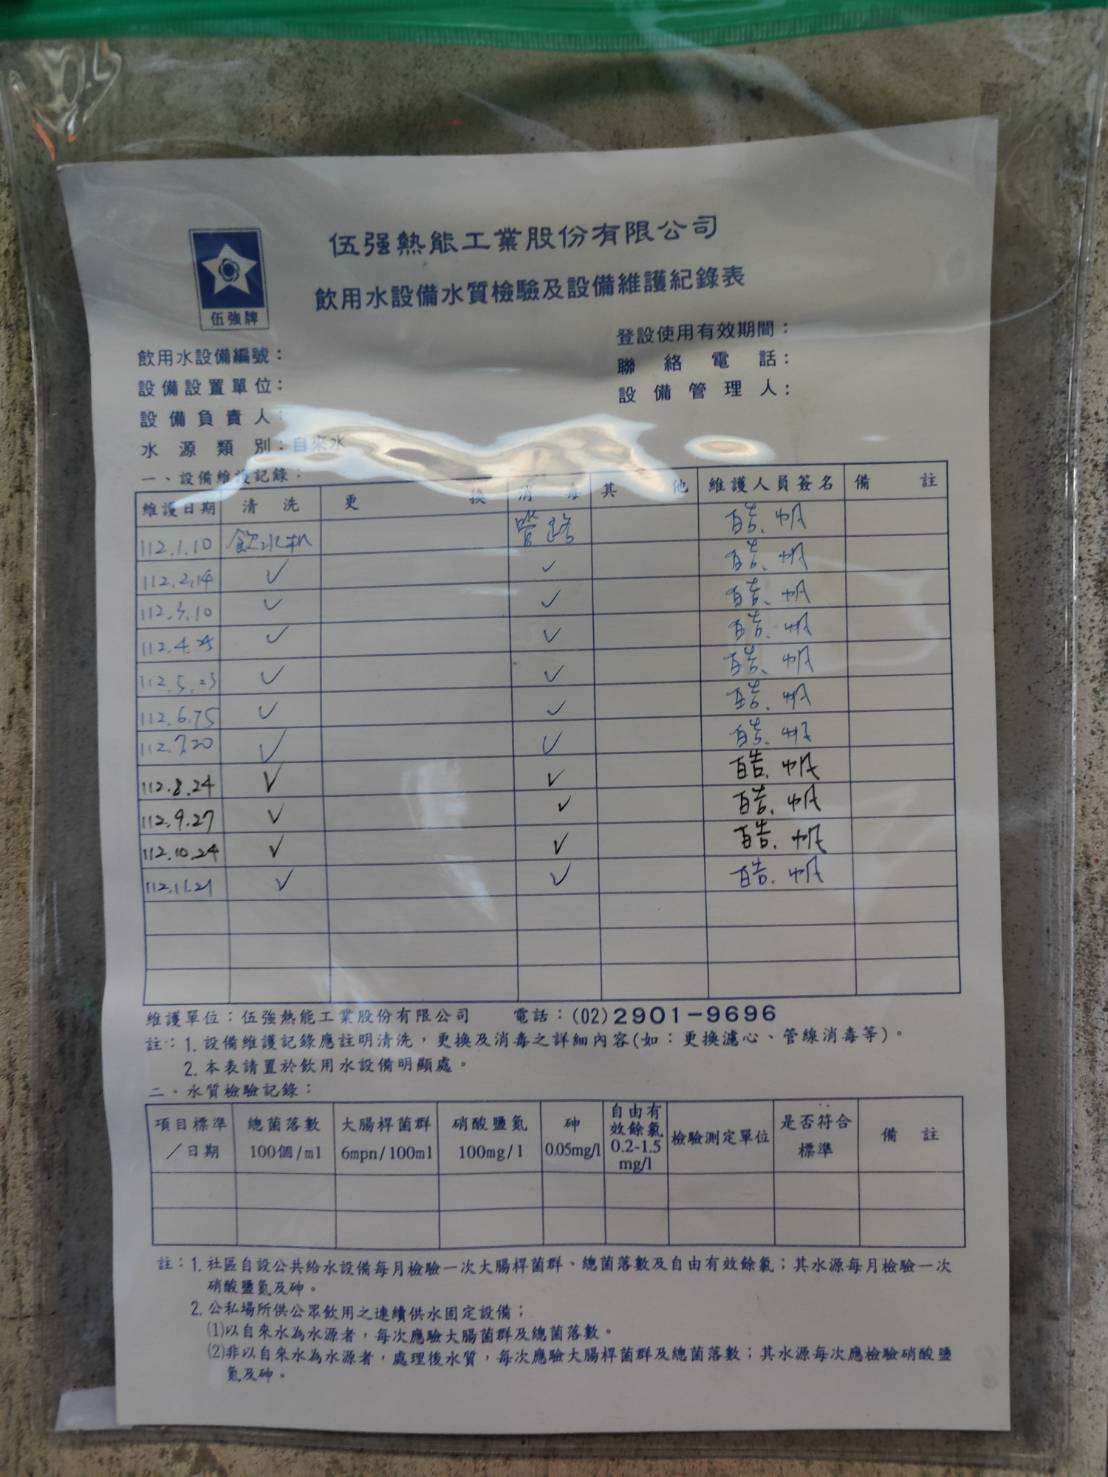 伍强熱能工業股份有限公司
飲用水設備水質檢驗及設備維護紀錄表
伍強牌
登設使用有效期間：
飲用水設備編號：
聯絡電話：
設備設置單位：
設備管理人：
設備負責人：
水源類別：自來水
一、設備維護記錄：
維護日期 清洗 更換 消毒 其他 維護人員簽名 備註
112.1.10 飲水机 管路
112.2.14 ✓ ✓
112.3.10 ✓ ✓
112.4.25 ✓ ✓
112.5.23 ✓ ✓
112.6. ✓ ✓
112.7.20 ✓ ✓
112.8.24 ✓ ✓
112.9.27 ✓ ✓
112.10.24 ✓ ✓
112.11.21 ✓ ✓
維護單位：伍強熱能工業股份有限公司 電話：(02)2901-9696
註：1.設備維護記錄應註明清洗，更換及消毒之詳細內容(如：更換濾心、管線消毒等)。
2.本表請置於飲用水設備明顯處。
二、水質檢驗記錄：
項目標準／日期 總菌落數100個/ml 大腸桿菌群6mpn/100ml 硝酸鹽氮100mg/l 砷0.05mg/l 自由有效餘氯0.2-1.5mg/l 檢驗測定單位 是否符合標準 備註
註：1.社區自設公共給水設備每月檢驗一次大腸桿菌群、總菌落數及自由有效餘氯；其水源每月檢驗一次
硝酸鹽氮及砷。
2.公私場所供公眾飲用之連續供水固定設備；
(1)以自來水為水源者，每次應驗大腸菌群及總菌落數。
(2)非以自來水為水源者，處理後水質，每次應驗大腸桿菌群及總菌落數；其水源每次應檢驗硝酸鹽
氮及砷。